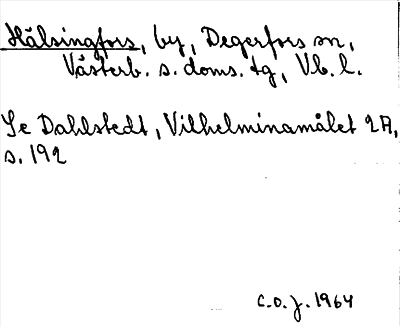 Hälsingfors, by, Degerfors sn,
Västerb. s. doms. tg, Vb. l.
Se Dahlstedt, Vilhelminamålet 2A,
s. 192
C.O.J. 1964